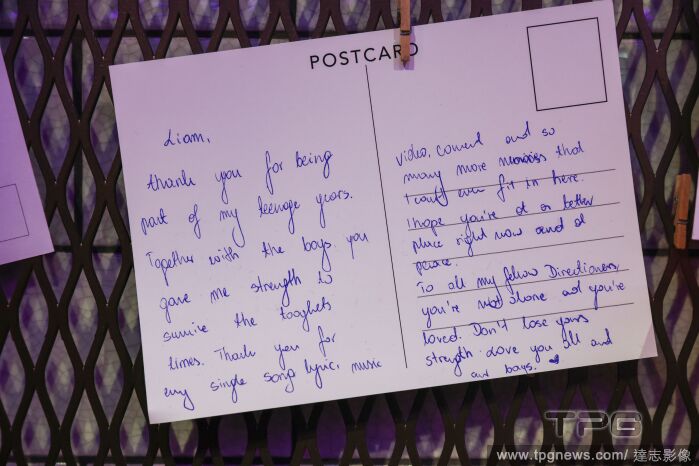 POSTCARD
Liam,
thank you for being
part of my teenage years.
Together with the boys you
gave me strength to
survive the toughets
times. Thank you for
any single song lyric, music
video, concert and so
many more that
I can't even fit in here.
I hope you're at a better
place right now and at
peace.
To all my fellow Directioners
you're not alone and you're
loved. Don't lose yours
strength. Love you all and
our boys.
TPG
www.tpgnews.com/ 達志影像